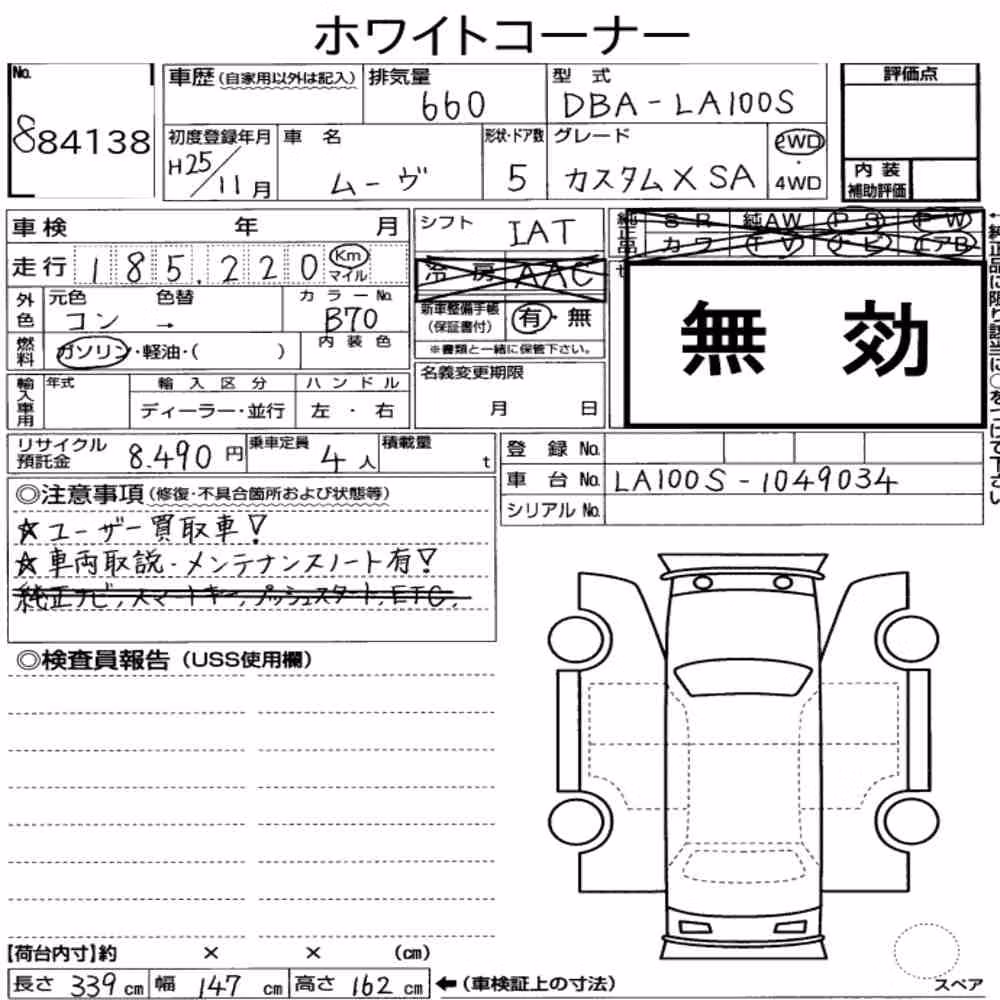 ホワイトコーナー
No. 884138
車歴（自家用以外は記入）
排気量 660
型式 DBA-LA100S
評価点
初度登録年月 H25/11月
車名 ムーヴ
形状・ドア数 5
グレード カスタムX SA
2WD・4WD
内装補助評価
車検 年 月
シフト IAT
純正品 SR 純AW PS PW
カワ TV ナビ エアB
走行 185,220 Km マイル
冷房 AAC
外色 元色 コン 色替 → カラーNo. B70
新車整備手帳（保証書付） 有・無
※書類と一緒に保管下さい。
無効
燃料 ガソリン・軽油・（ ） 内装色
名義変更期限 月 日
輸入車用 年式 輸入区分 ハンドル
ディーラー・並行 左・右
←純正品に限り該当に○をつけて下さい
リサイクル預託金 8.490円 乗車定員 4人 積載量 t
登録No.
車台No. LA100S-1049034
シリアルNo.
◎注意事項（修復・不具合箇所および状態等）
☆ユーザー買取車！
☆車両取説・メンテナンスノート有！
純正ナビ，スマートキー，プッシュスタート，ETC，
◎検査員報告（USS使用欄）
【荷台内寸】約 × × （cm）
長さ 339cm 幅 147cm 高さ 162cm ←（車検証上の寸法）
スペア